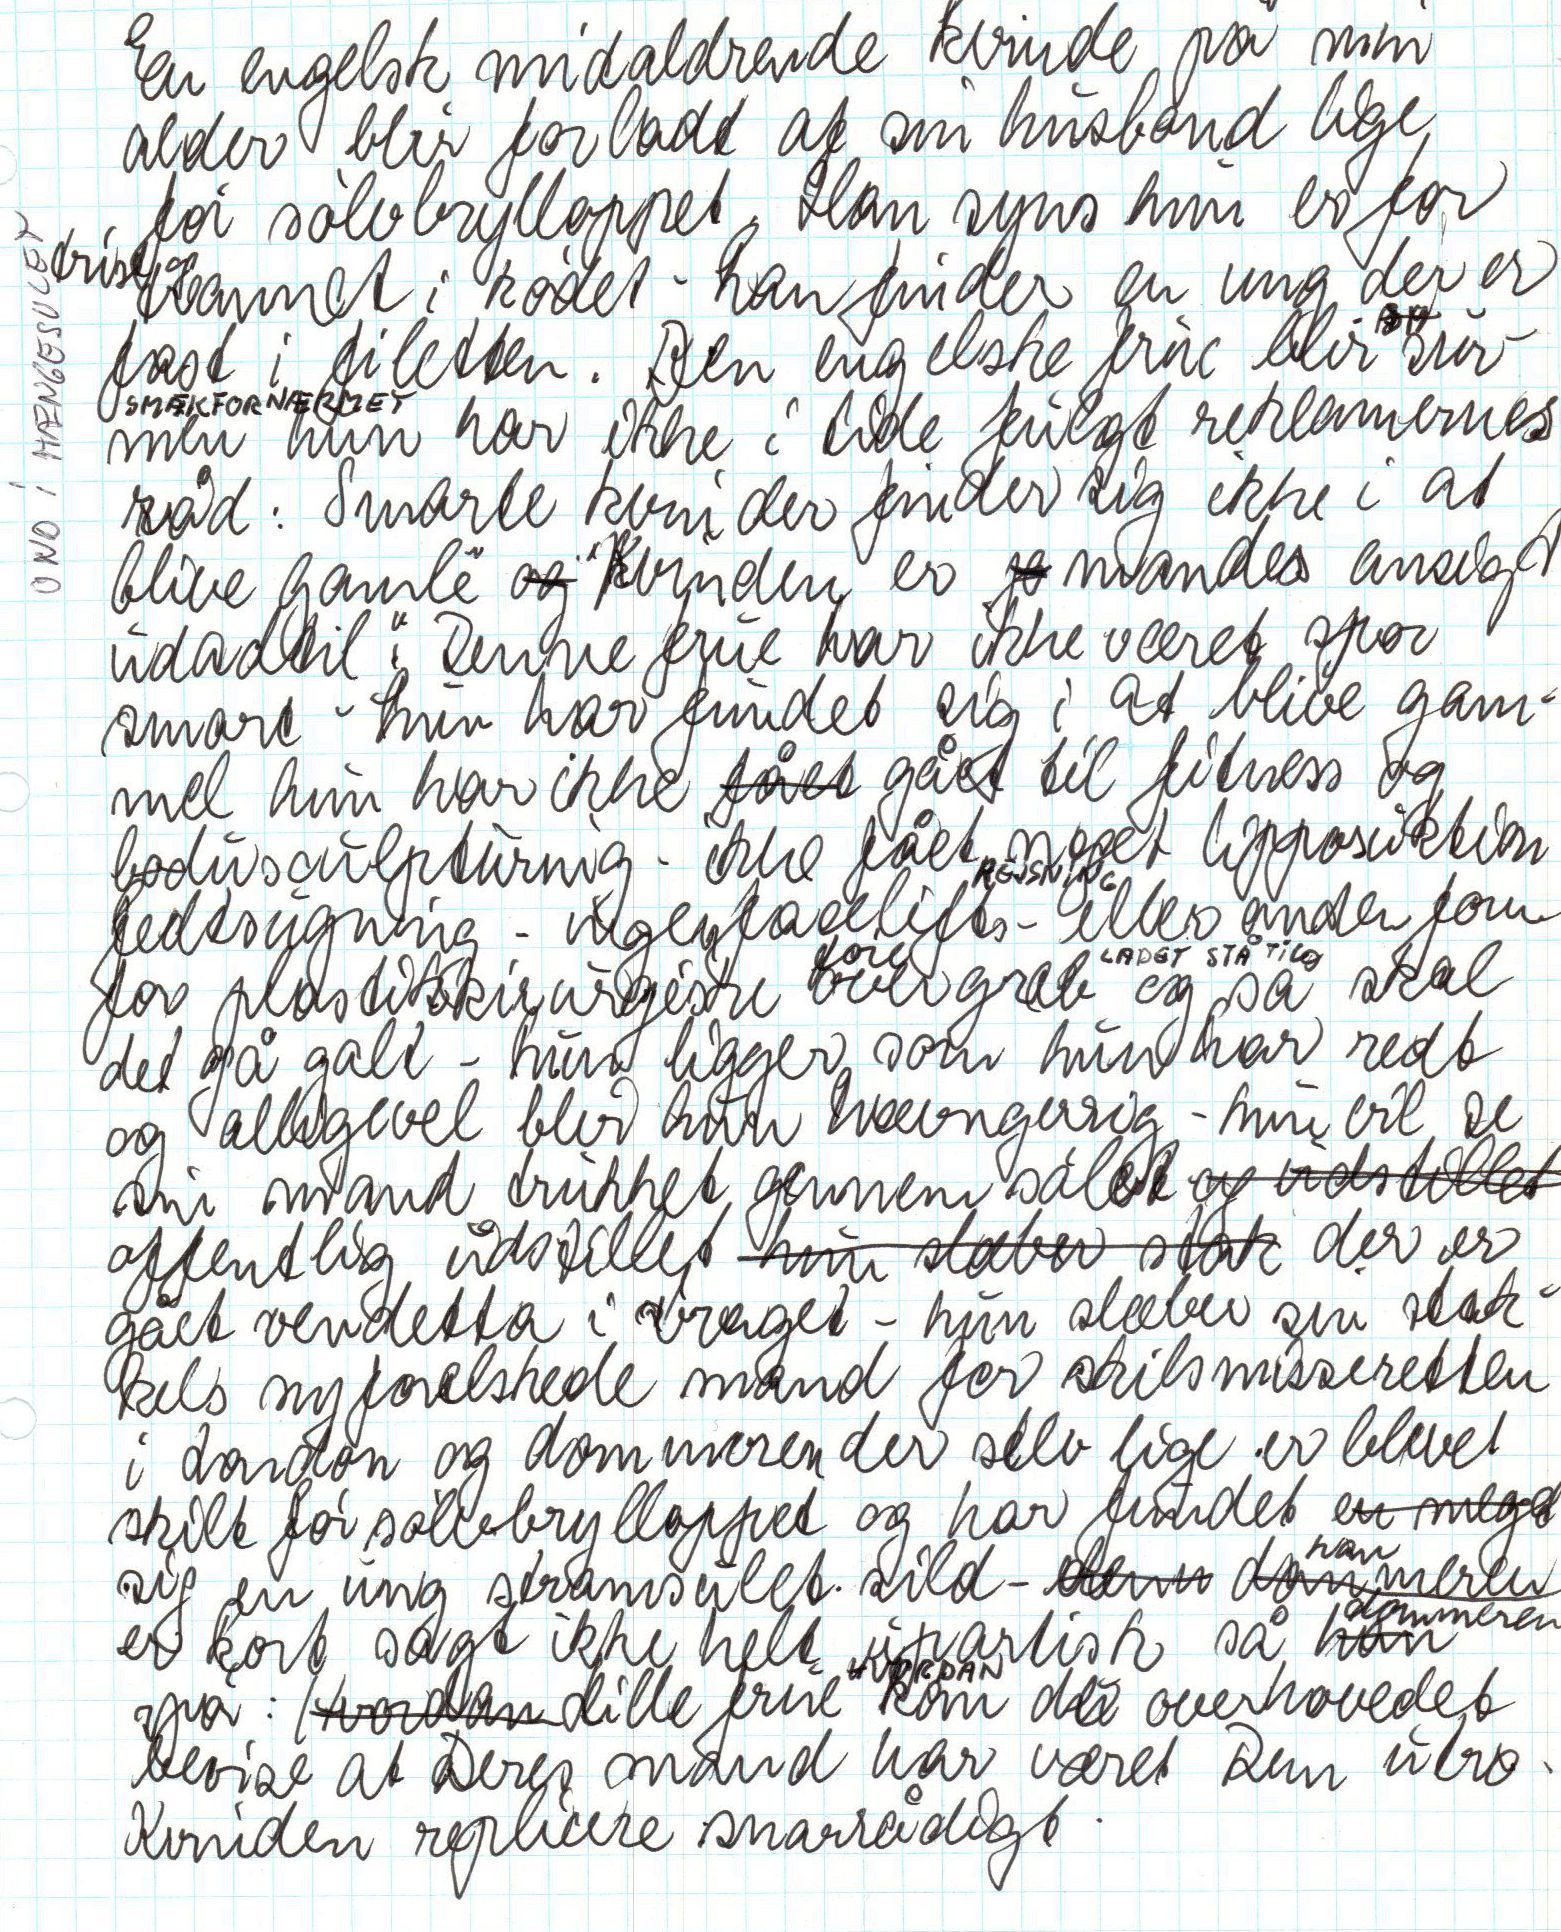 En engelsk midaldrende kvinde på min
alder blir forladt af sin husbond lige
før sølvbrylluppet. Han syns hun er for
trist og
tkannet i kødet - han finder en ung der er
fast i filetten. Den engelske frue blir sur
SMÆKFORNÆRMET
men hun har ikke i tide fulgt reklamernes
råd: Smarte kvinder finder sig ikke i at
blive gamle" og "Kvinden er jo mandes ansigt
udadtil". Denne frue har ikke været spor
smart - hun har fundet sig i at blive gam-
mel hun har ikke fået gået til fitness og
bodusculpturnig - ikke fået noget lipposuktion
REJSNING
fedtsugning - ingen facelifts - eller anden form
fore LADET STÅ TIL
for plastikkirurgiske overgreb og så skal
det gå galt - hun ligger som hun har redt
og alligevel blir hun hævngerrig - hun vil se
sin mand trukket gennem sølet og udstillet
offentlig udstillet hun slæber stak der er
gået vendetta i kraget - hun slæber sin stak-
kels nyforelskede mand for skilsmisseretten
i London og dommeren der selv lige er blevet
skilt før sølvbrylluppet og har fundet en meget
sig en ung stramsulet sild - denn dommeren
han
er kort sagt ikke helt upartisk så han
dommeren
HVORDAN
spør: hvordan lille frue kan de overhovedet
bevise at Deres mand har været Dem utro.
Kvinden replicere snarrådigt.
UND I HÆNGESULET